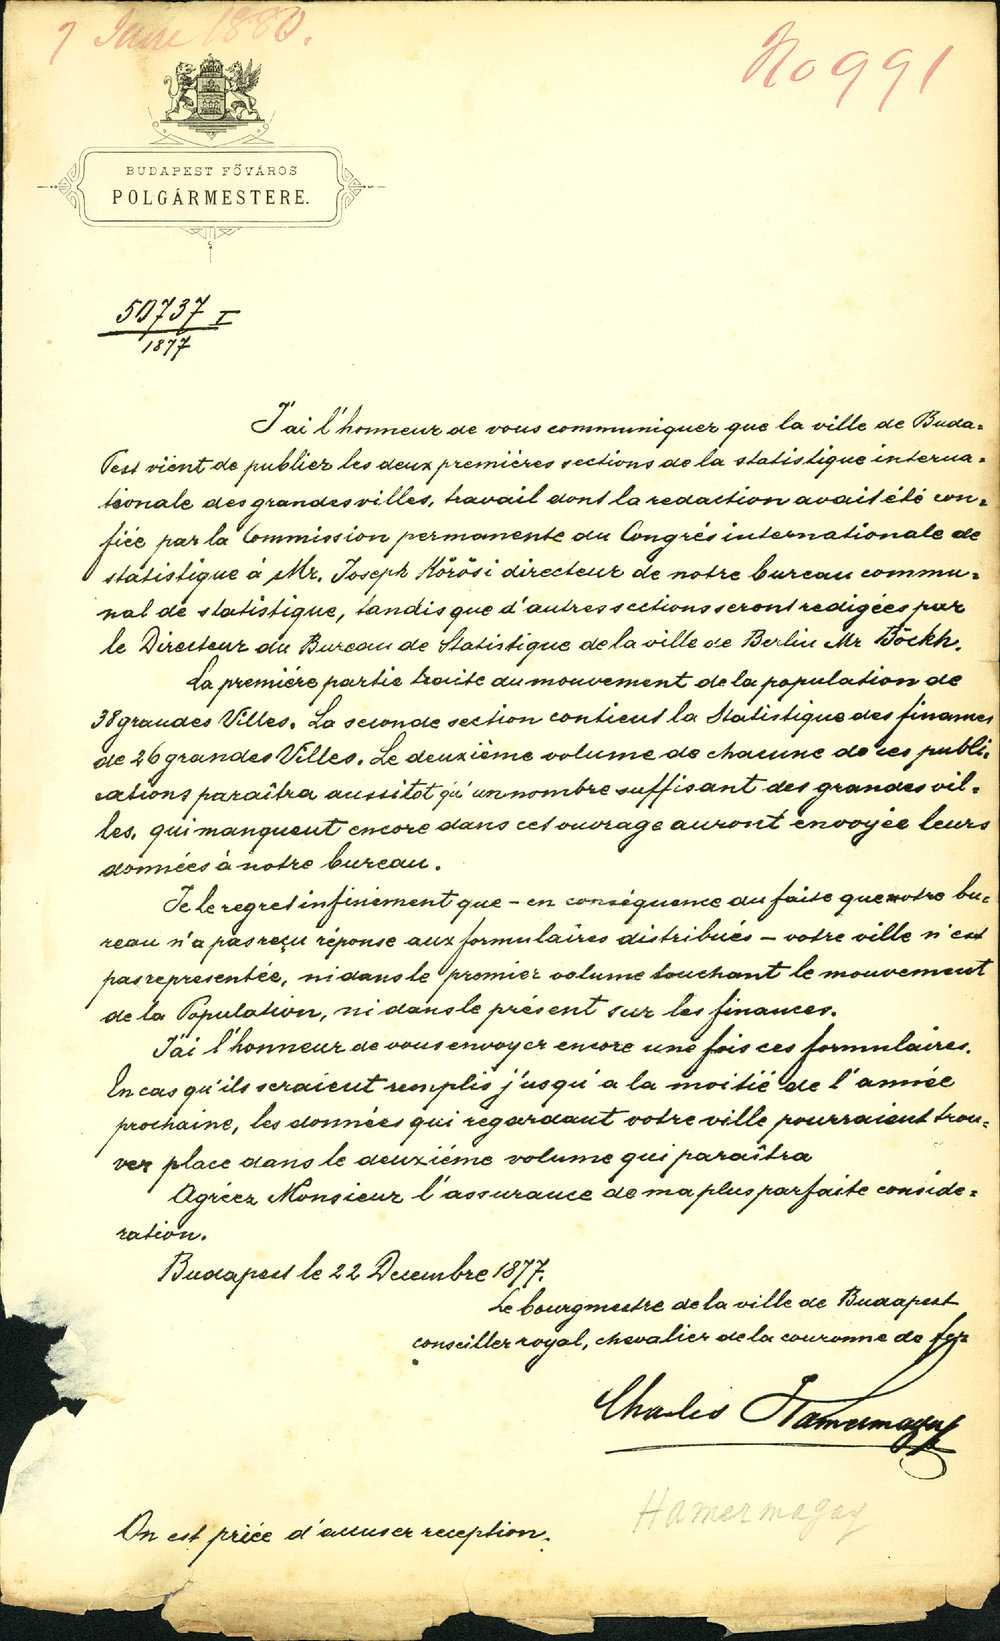 7 June 1880.
No 991
BUDAPEST FŐVÁROS
POLGÁRMESTERE.
50737 I
1877
J'ai l'honneur de vous communiquer que la ville de Buda=
Pest vient de publier les deux premières sections de la statistique interna=
tionale des grandes villes, travail dont la redaction avait été con=
fiée par la Commission permanente du Congrés internationale de
statistique à Mr. Joseph Körösi directeur de notre bureau commu=
nal de statistique, tandis que d'autres sections seront redigées par
le Directeur du Bureau de Statistique de la ville de Berlin Mr Böckh.
La première partie traite du mouvement de la population de
38 grandes Villes. La seconde section contient la Statistique des finances
de 26 grandes Villes. Le deuxième volume de chacune de ces publi=
cations paraîtra aussitot qu'un nombre suffisant des grandes vil=
les, qui manquent encore dans cet ouvrage auront envoyée leurs
données à notre bureau.
Je le regret infiniement que – en conséquence du faite que notre bu=
reau n'a pas reçu réponse aux formulaires distribués – votre ville n'est
pas representée, ni dans le premier volume touchant le mouvement
de la Population, ni dans le présent sur les finances.
J'ai l'honneur de vous envoyer encore une fois ces formulaires.
En cas qu'ils seraient remplis j'usqu'a la moitié de l'année
prochaine, les données qui regardant votre ville pourraient trou=
ver place dans le deuxiéme volume qui paraîtra
Agréez Monsieur l'assurance de ma plus parfaite conside=
ration.
Budapest le 22 Decembre 1877.
Le bourgmestre de la ville de Budapest
conseiller royal, chevalier de la couronne de fer
Charles Kamermayer
Hamermagay
On est priée d'accuser reception.